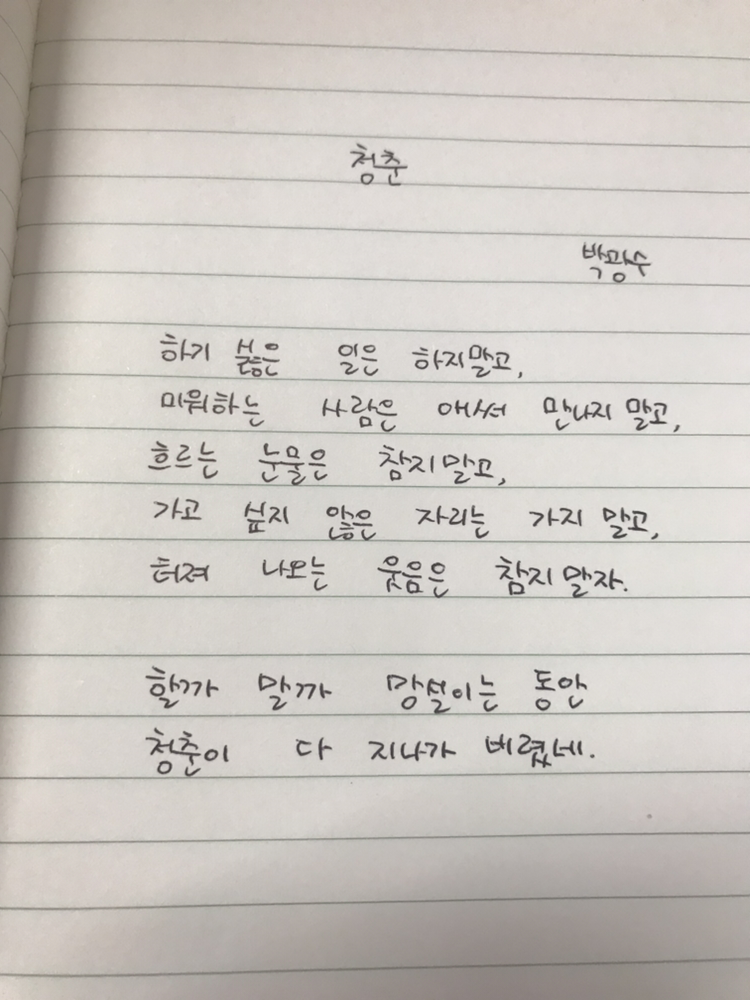 청춘
박광수
하기 싫은 일은 하지말고,
미워하는 사람은 애써 만나지 말고,
흐르는 눈물은 참지말고,
가고 싶지 않은 자리는 가지 말고,
터져 나오는 웃음은 참지말자.
할까 말까 망설이는 동안
청춘이 다 지나가 버렸네.